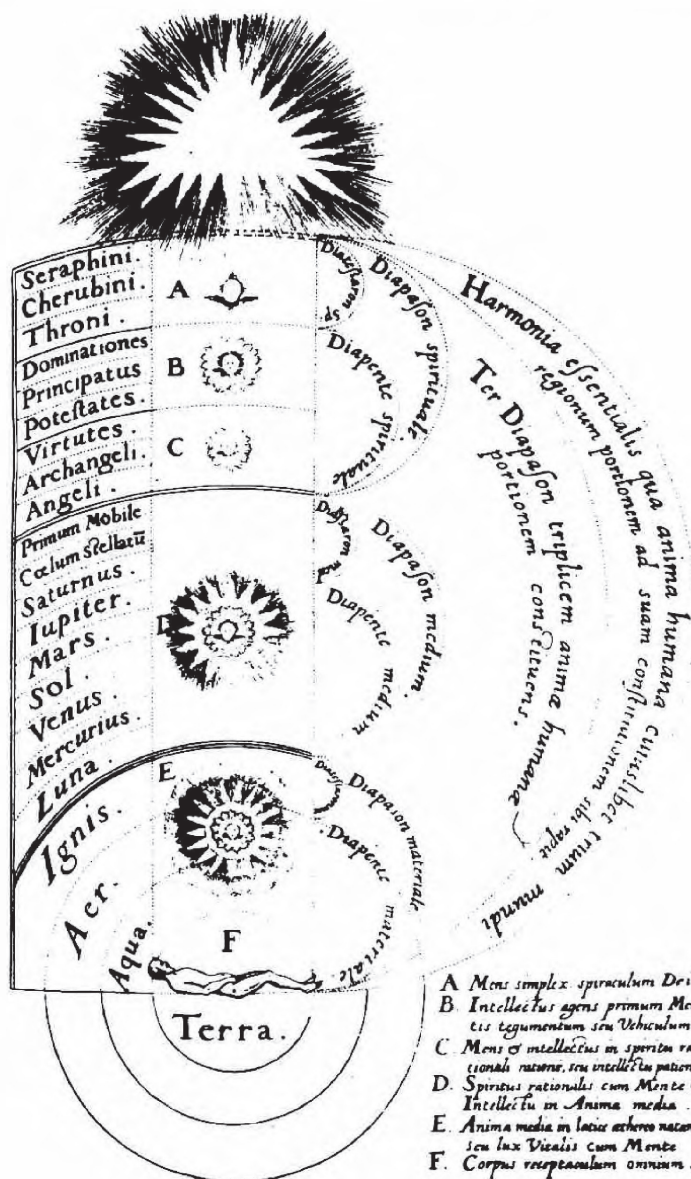 Seraphini.
Cherubini.
Throni.
Dominationes
Principatus
Potestates.
Virtutes.
Archangeli.
Angeli.
Primum Mobile
Cœlum Stellatū
Saturnus.
Iupiter.
Mars.
Sol.
Venus.
Mercurius.
Luna.
Ignis.
Aer.
Aqua.
Terra.
A
B
C
D
E
F
Diateſſaron sp
Diapaſon spirituale.
Diapente spirituale.
Diapaſon medium.
Diapente medium
Diapaſon materiale
Diapente materiale.
Ter Diapaſon triplicem animæ humanæ
portionem conſtituens.
Harmonia eſſentialis qua anima humana cuiuslibet trium mundi
regionum portionem ad suam conſtitutionem sibi rapit
A Mens simplex spiraculum Dei
B. Intellectus agens primum Me
tis tegumentum seu Vehiculum
C. Mens & intellectus in spiritu ra
tionali ratione, seu intellectu patien
D. Spiritus rationalis cum Mente
Intellectu in Anima media.
E. Anima media in latice æthereo natan
seu lux Vitalis cum Mente
F. Corpus receptaculum omnium